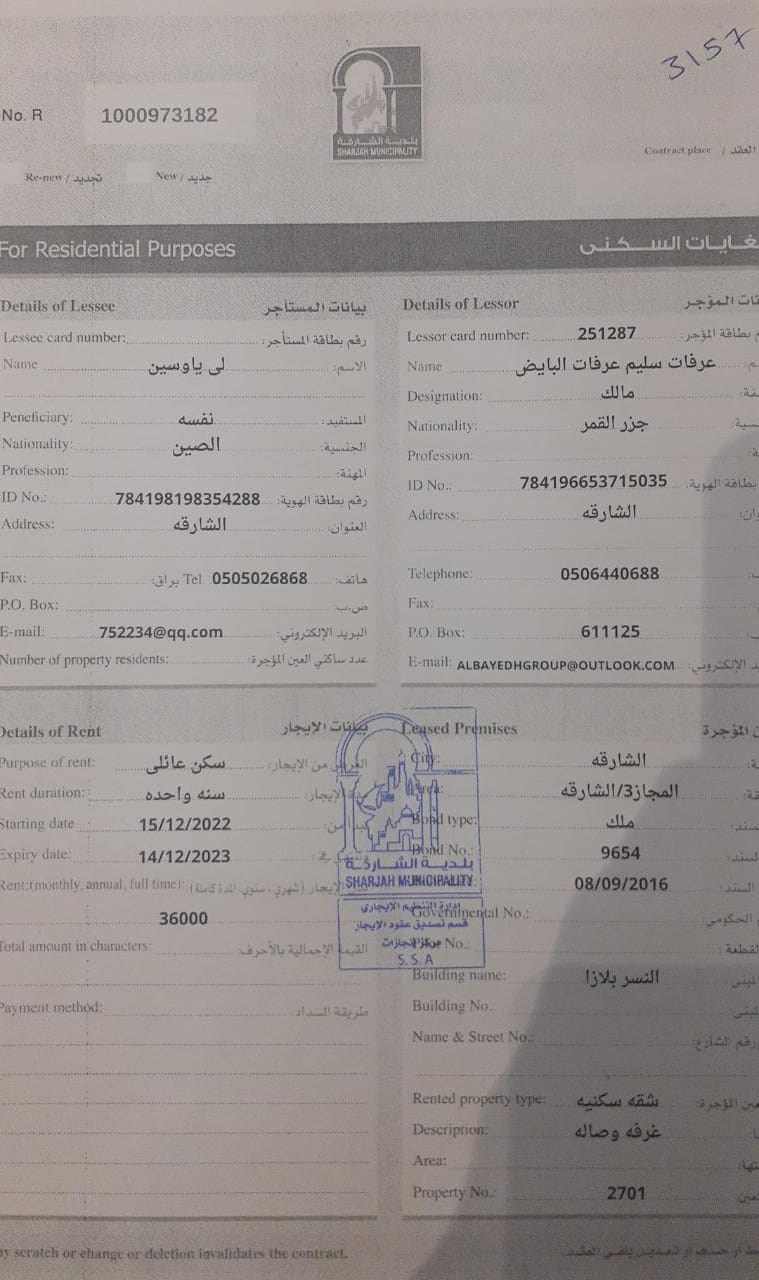 3157
No. R 1000973182
بلدية الشارقة
SHARJAH MUNICIPALITY
Contract place / العقد
Re-new / تجديد New / جديد
For Residential Purposes
لغايات السكنى
Details of Lessee بيانات المستأجر
Lessee card number: رقم بطاقة المستأجر:
Name لى ياوسين الاسم:
Peneficiary: نفسه المستفيد:
Nationality: الصين الجنسية:
Profession: المهنة:
ID No.: 784198198354288 رقم بطاقة الهوية:
Address: الشارقه العنوان:
Fax: براق: Tel 0505026868 هاتف:
P.O. Box: ص.ب:
E-mail: 752234@qq.com البريد الإلكتروني:
Number of property residents: عدد ساكني العين المؤجرة:
Details of Lessor المؤجر
Lessor card number: 251287 بطاقة المؤجر:
Name عرفات سليم عرفات البايض
Designation: مالك
Nationality: جزر القمر
Profession:
ID No.: 784196653715035 بطاقة الهوية:
Address: الشارقه
Telephone: 0506440688
Fax:
P.O. Box: 611125
E-mail: ALBAYEDHGROUP@OUTLOOK.COM الإلكتروني:
Details of Rent بيانات الإيجار
Purpose of rent: سكن عائلى من الإيجار:
Rent duration: سنه واحده الإيجار:
Starting date 15/12/2022 من:
Expiry date: 14/12/2023
Rent:(monthly, annual, full time): الإيجار (شهري، سنوي، المدة كاملة):
36000
Total amount in characters: القيمة الإجمالية بالأحرف:
Payment method: طريقة السداد
Leased Premises المؤجرة
City: الشارقه
Area: المجاز3/الشارقه
Bond type: ملك
Bond No.: 9654
08/09/2016
Governmental No.: الحكومي:
No.: القطعة:
Building name: النسر بلازا
Building No.:
Name & Street No.: رقم الشارع:
Rented property type: شقه سكنيه المؤجرة:
Description: غرفه وصاله
Area:
Property No.: 2701
بلدية الشارقة
SHARJAH MUNICIPALITY
إدارة التنظيم الإيجاري
قسم تصديق عقود الإيجار
S.S.A
scratch or change or deletion invalidates the contract.